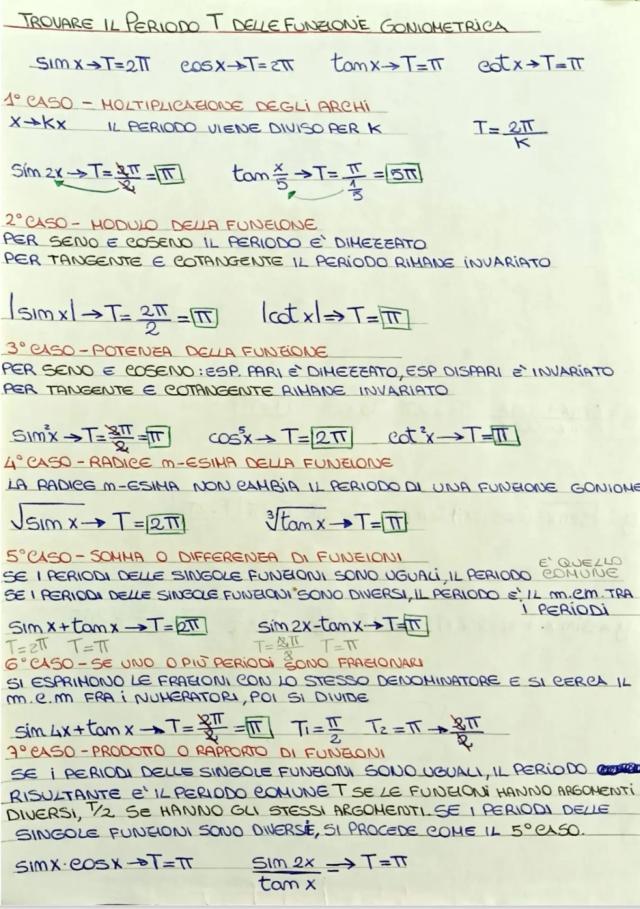 TROVARE IL PERIODO T DELLE FUNZIONE GONIOMETRICA
sin x → T=2π cos x → T=2π tan x → T=π cot x → T=π
1° CASO - MOLTIPLICAZIONE DEGLI ARCHI
X→KX IL PERIODO VIENE DIVISO PER K T= 2π/K
sin 2x → T= 2π/2 = π tan x/5 → T= π/(1/5) = 5π
2° CASO - MODULO DELLA FUNZIONE
PER SENO E COSENO IL PERIODO E' DIMEZZATO
PER TANGENTE E COTANGENTE IL PERIODO RIMANE INVARIATO
|sin x| → T= 2π/2 = π |cot x| → T= π
3° CASO - POTENZA DELLA FUNZIONE
PER SENO E COSENO: ESP. PARI E' DIMEZZATO, ESP DISPARI E' INVARIATO
PER TANGENTE E COTANGENTE RIMANE INVARIATO
sin²x → T= 2π/2 = π cos⁵x → T= 2π cot²x → T= π
4° CASO - RADICE n-ESIMA DELLA FUNZIONE
LA RADICE n-ESIMA NON CAMBIA IL PERIODO DI UNA FUNZIONE GONIOME
√sin x → T= 2π ³√tan x → T= π
5° CASO - SOMMA O DIFFERENZA DI FUNZIONI
SE I PERIODI DELLE SINGOLE FUNZIONI SONO UGUALI, IL PERIODO E' QUELLO COMUNE
SE I PERIODI DELLE SINGOLE FUNZIONI SONO DIVERSI, IL PERIODO E' IL m.c.m. TRA
I PERIODI
sin x + tan x → T= 2π sin 2x - tan x → T= π
T=2π T=π T= 2π/2 T=π
6° CASO - SE UNO O PIU' PERIODI SONO FRAZIONARI
SI ESPRIMONO LE FRAZIONI CON LO STESSO DENOMINATORE E SI CERCA IL
m.c.m FRA I NUMERATORI, POI SI DIVIDE
sin 4x + tan x → T= 2π/2 = π T₁= π/2 T₂= π → 2π/2
7° CASO - PRODOTTO O RAPPORTO DI FUNZIONI
SE I PERIODI DELLE SINGOLE FUNZIONI SONO UGUALI, IL PERIODO
RISULTANTE E' IL PERIODO COMUNE T SE LE FUNZIONI HANNO ARGOMENTI
DIVERSI, T/2 SE HANNO GLI STESSI ARGOMENTI. SE I PERIODI DELLE
SINGOLE FUNZIONI SONO DIVERSE, SI PROCEDE COME IL 5° CASO.
sin x · cos x → T=π sin 2x/tan x → T=π